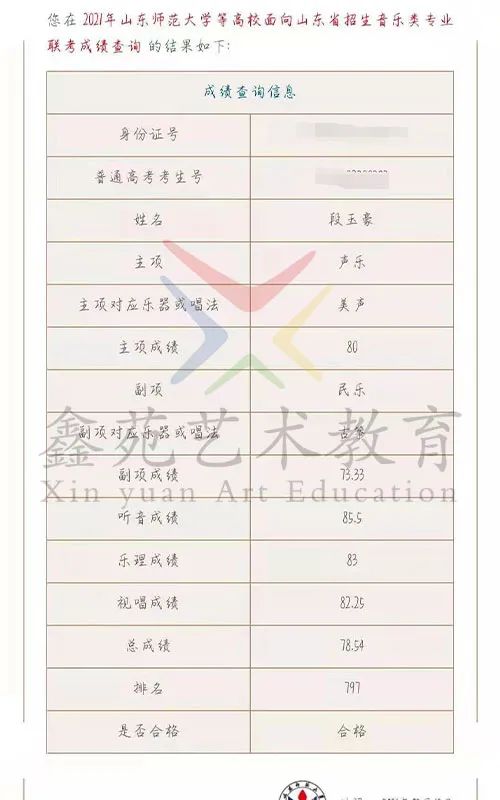 您在2021年山东师范大学等高校面向山东省招生音乐类专业
联考成绩查询 的结果如下:
成绩查询信息
身份证号
普通高考考生号
姓名 段玉豪
主项 声乐
主项对应乐器或唱法 美声
主项成绩 80
副项 民乐
副项对应乐器或唱法 古筝
鑫苑艺术教育
副项成绩 73.33
Xin yuan Art Education
听音成绩 85.5
乐理成绩 83
视唱成绩 82.25
总成绩 78.54
排名 797
是否合格 合格